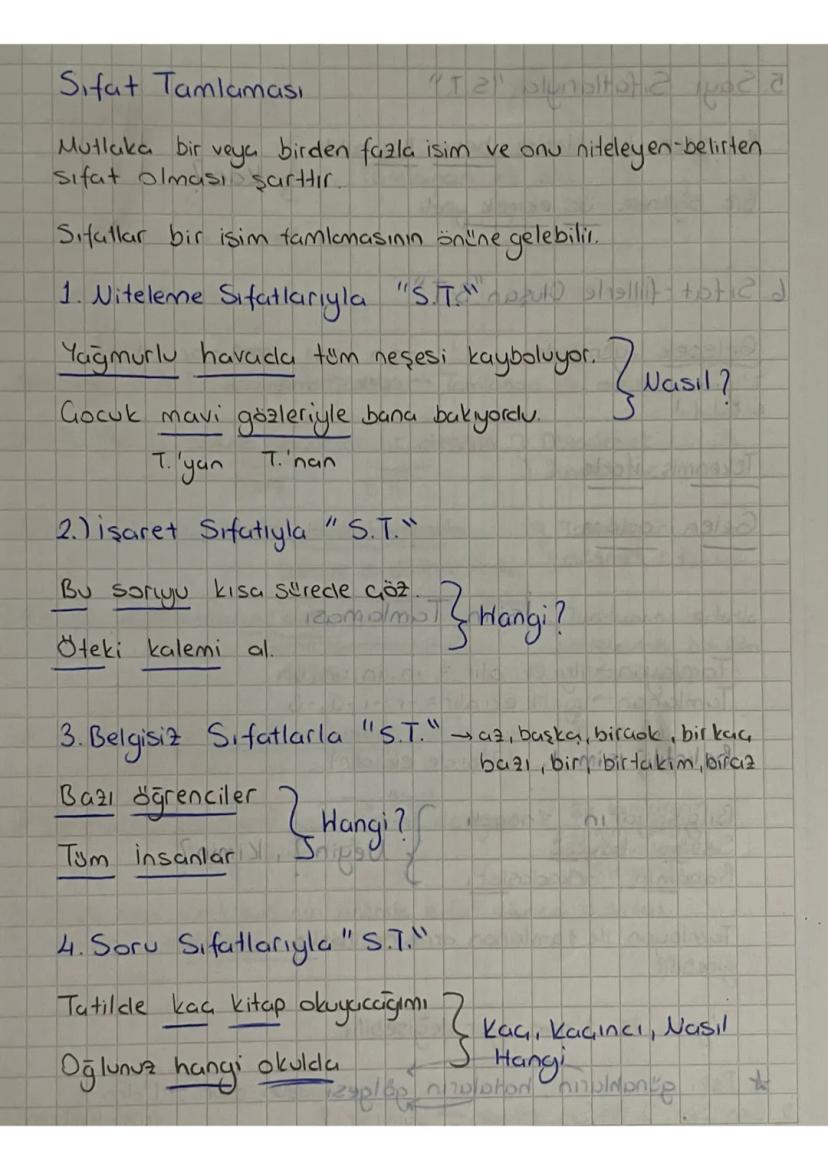 Sıfat Tamlaması
Mutlaka bir veya birden fazla isim ve onu niteleyen-belirten
sıfat olması şarttır.
Sıfatlar bir isim tamlamasının önüne gelebilir.
1. Niteleme Sıfatlarıyla "S.T."
Yağmurlu havada tüm neşesi kayboluyor.
Nasıl?
Çocuk mavi gözleriyle bana bakıyordu.
T.'yan T.'nan
2.) işaret Sıfatıyla "S.T."
Bu soruyu kısa sürede çöz.
Hangi?
Öteki kalemi al.
3. Belgisiz Sıfatlarla "S.T." → az, başka, birçok, birkaç,
bazı, bir, birtakim, biraz
Bazı öğrenciler
Hangi?
Tüm insanlar
4. Soru Sıfatlarıyla "S.T."
Tatilde kaç kitap okuyacağımı
Kaç, Kaçıncı, Nasıl
Hangi
Oğlunuz hangi okulda